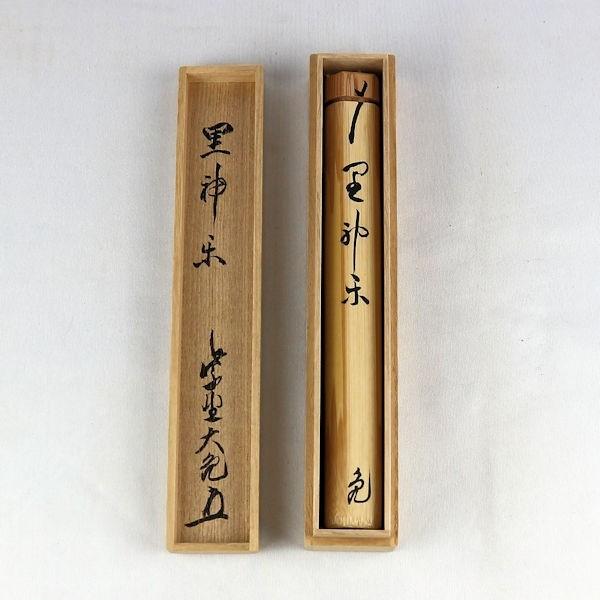 里神楽
紫野大亀
里神楽
亀